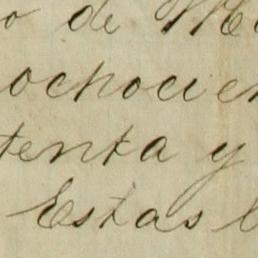 o de Me
ochocien
tenta y
Estas l